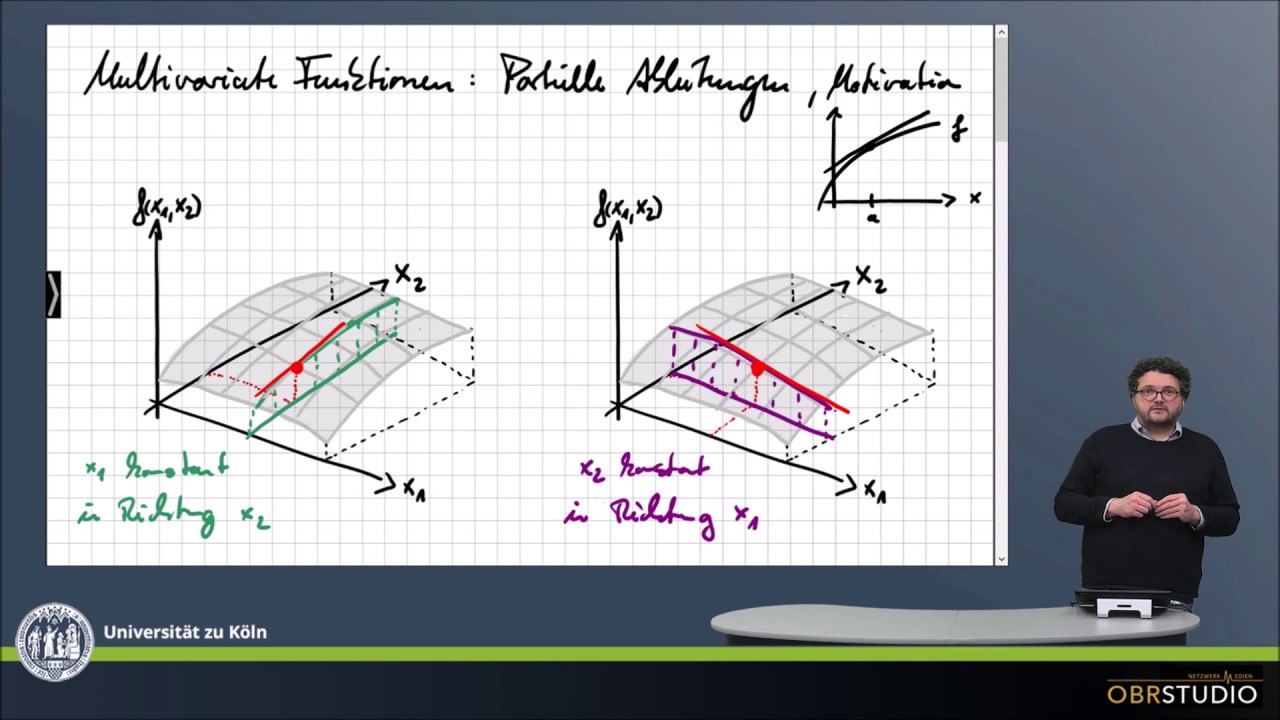 Multivariate Funktionen: Partielle Ableitungen, Motivation
f
x
a
f(x₁,x₂)
x₂
x₁
x₁ konstant
in Richtung x₂
f(x₁,x₂)
x₂
x₁
x₂ konstant
in Richtung x₁
Universität zu Köln
NETZWERK MEDIEN
OBRSTUDIO